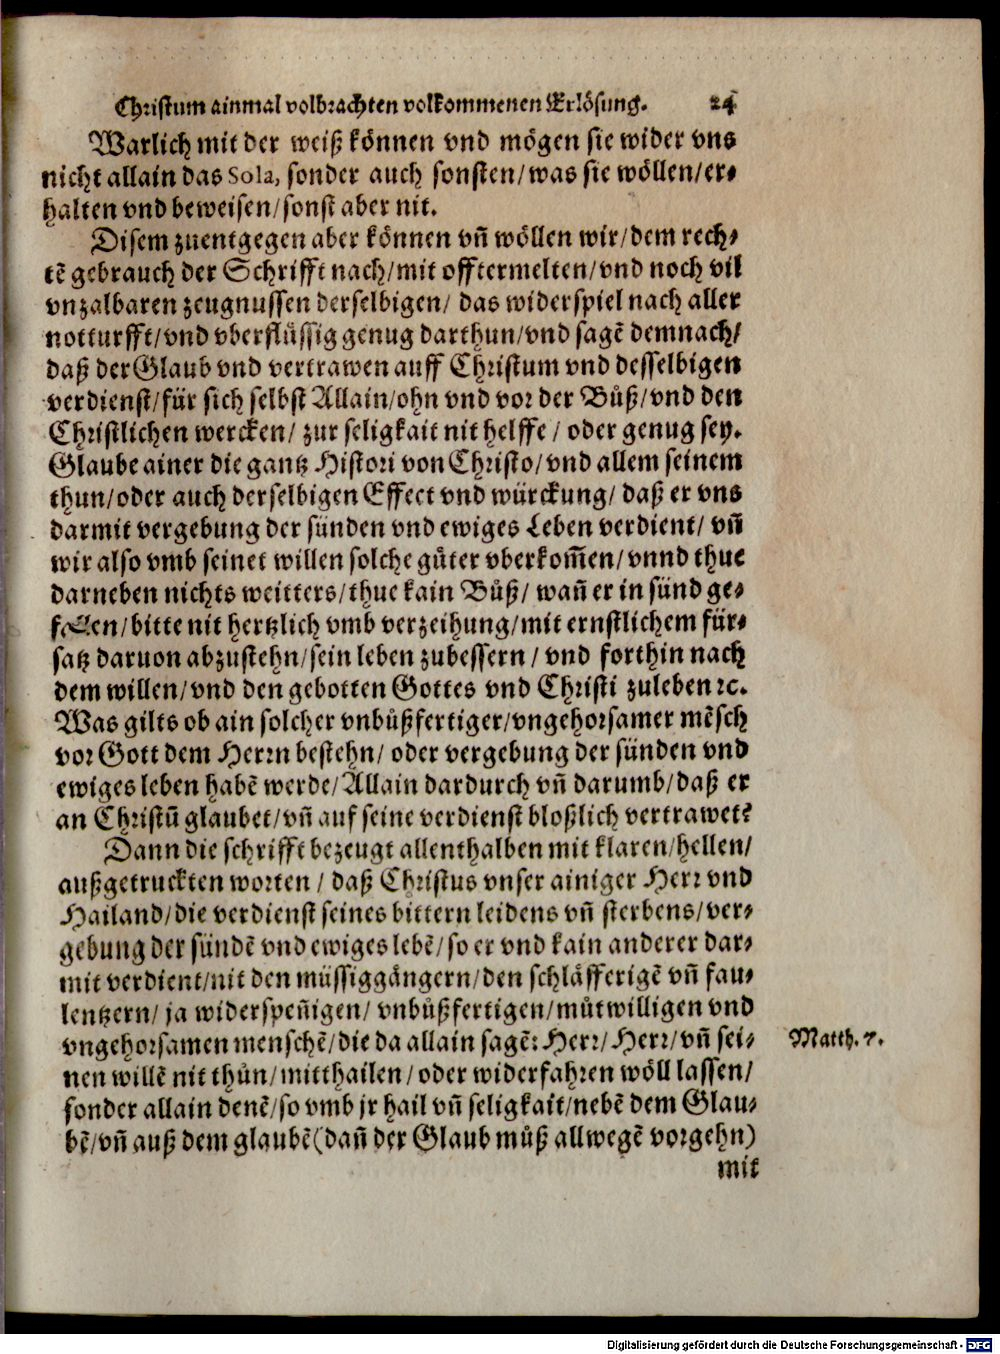 Christum ainmal volbrachten volkommenen Erlösung. 24
Warlich mit der weiß können vnd mögen sie wider vns
nicht allain das Sola, sonder auch sonsten/was sie wöllen/er-
halten vnd beweisen/sonst aber nit.
Disem zuentgegen aber können vñ wöllen wir/dem rech-
tē gebrauch der Schrifft nach/mit offtermelten/vnd noch vil
vnzalbaren zeugnussen derselbigen/ das widerspiel nach aller
notturfft/vnd vberflüssig genug darthun/vnd sagē demnach/
daß der Glaub vnd vertrawen auff Christum vnd desselbigen
verdienst/für sich selbst Allain/ohn vnd vor der Bůß/vnd den
Christlichen wercken/ zur seligkait nit helffe / oder genug sey.
Glaube ainer die gantz Histori von Christo/vnd allem seinem
thun/oder auch derselbigen Effect vnd würckung/ daß er vns
darmit vergebung der sünden vnd ewiges Leben verdient/ vñ
wir also vmb seinet willen solche gůter vberkom̃en/vnnd thue
darneben nichts weitters/thue kain Bůß/ wañ er in sünd ge-
fallen/bitte nit hertzlich vmb verzeihung/mit ernstlichem für-
satz daruon abzustehn/sein leben zubessern / vnd forthin nach
dem willen/vnd den gebotten Gottes vnd Christi zuleben ꝛc.
Was gilts ob ain solcher vnbůßfertiger/vngehorsamer mēsch
vor Gott dem Herrn bestehn/ oder vergebung der sünden vnd
ewiges leben habē werde/Allain dardurch vñ darumb/daß er
an Christū glaubet/vñ auf seine verdienst bloßlich vertrawet?
Dann die schrifft bezeugt allenthalben mit klaren/hellen/
außgetruckten worten / daß Christus vnser ainiger Herr vnd
Hailand/die verdienst seines bittern leidens vñ sterbens/ver-
gebung der sündē vnd ewiges lebē/so er vnd kain anderer dar-
mit verdient/nit den müssiggängern/den schläfferigē vñ fau-
lentzern/ ja widerspeñigen/ vnbůßfertigen/můtwilligen vnd
vngehorsamen menschē/die da allain sagē: Herr/Herr/vñ sei- Matth. 7.
nen willē nit thůn/mitthailen/oder widerfahren wöll lassen/
sonder allain denē/so vmb jr hail vñ seligkait/nebē dem Glau-
bē/vñ auß dem glaubē(dañ der Glaub můß allwegē vorgehn)
mit
Digitalisierung gefördert durch die Deutsche Forschungsgemeinschaft - DFG